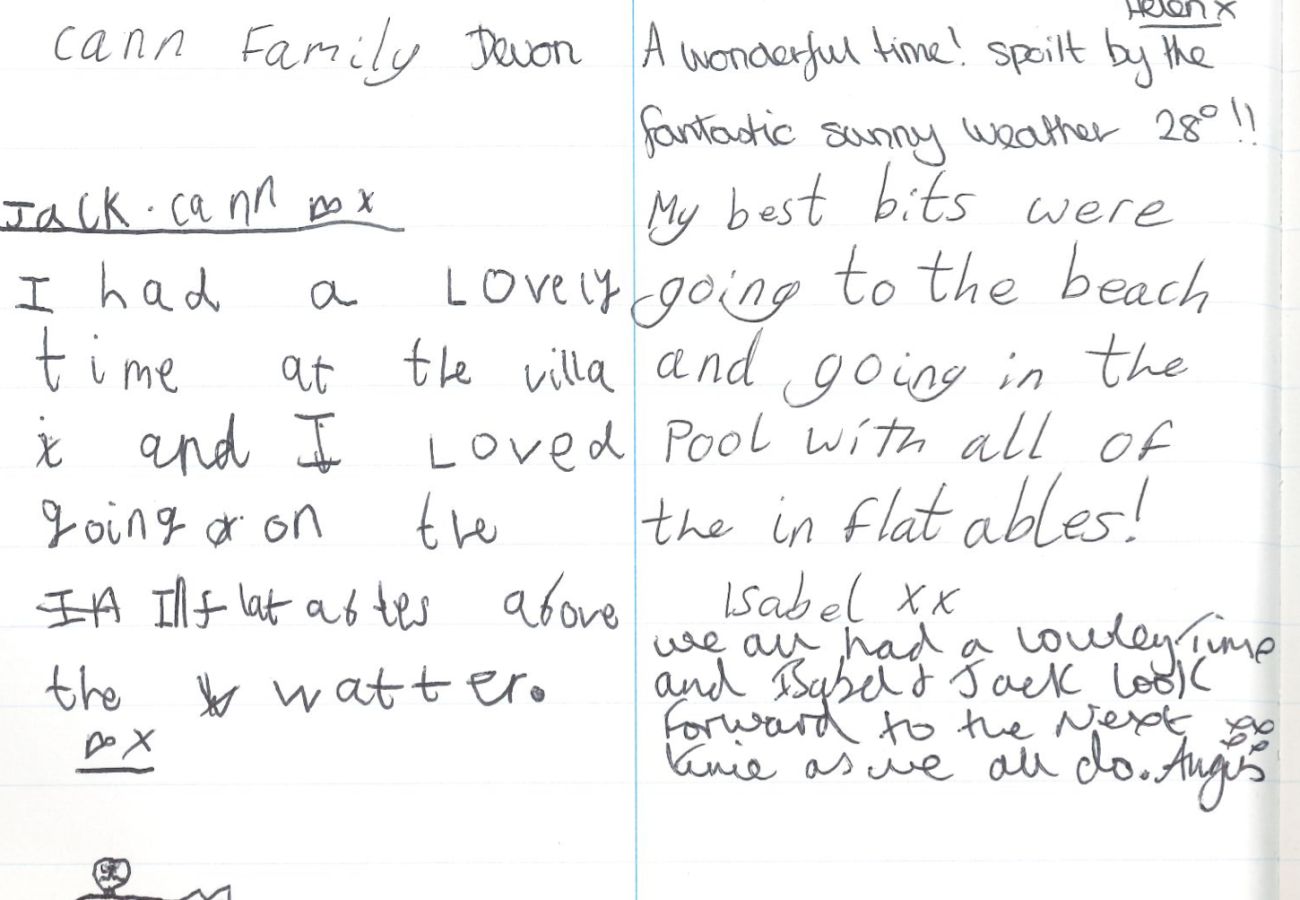 Cann Family Devon
Jack. cann x
I had a Lovely
time at the villa
x and I Loved
going on the
In Inflatabtes above
the watter.
x
Helen x
A wonderful time! spoilt by the
fantastic sunny weather 28° !!
My best bits were
going to the beach
and going in the
Pool with all of
the in flat ables!
Isabel xx
we all had a lovley Time
and Isabel & Jack look
forward to the Next
time as we all do. Angus